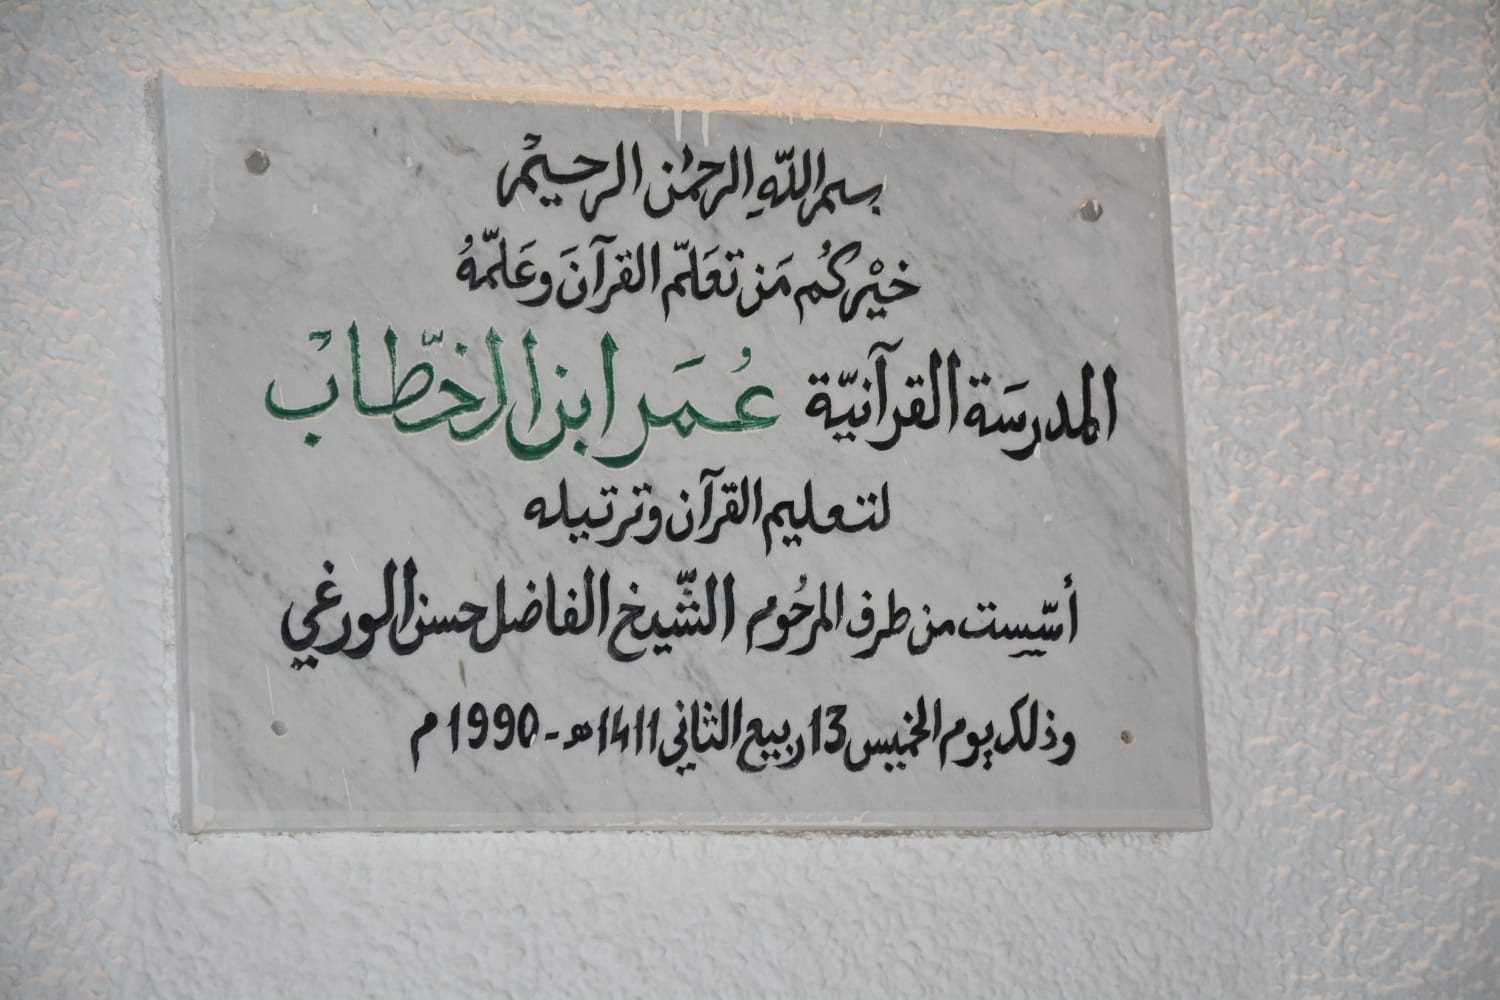 بسم اللّهِ الرحمٰن الرحيمْ
خيْركُم مَن تعَلّم القرآنَ وعَلّمهُ
المدرسَة القرآنيّة عُمَر ابن الخطّاب
لتعليم القرآن وترتيله
أسّست من طرف المرحُوم الشّيخ الفاضل حسن الورغي
وذلك يوم الخميس 13 ربيع الثاني 1411 هـ - 1990 م